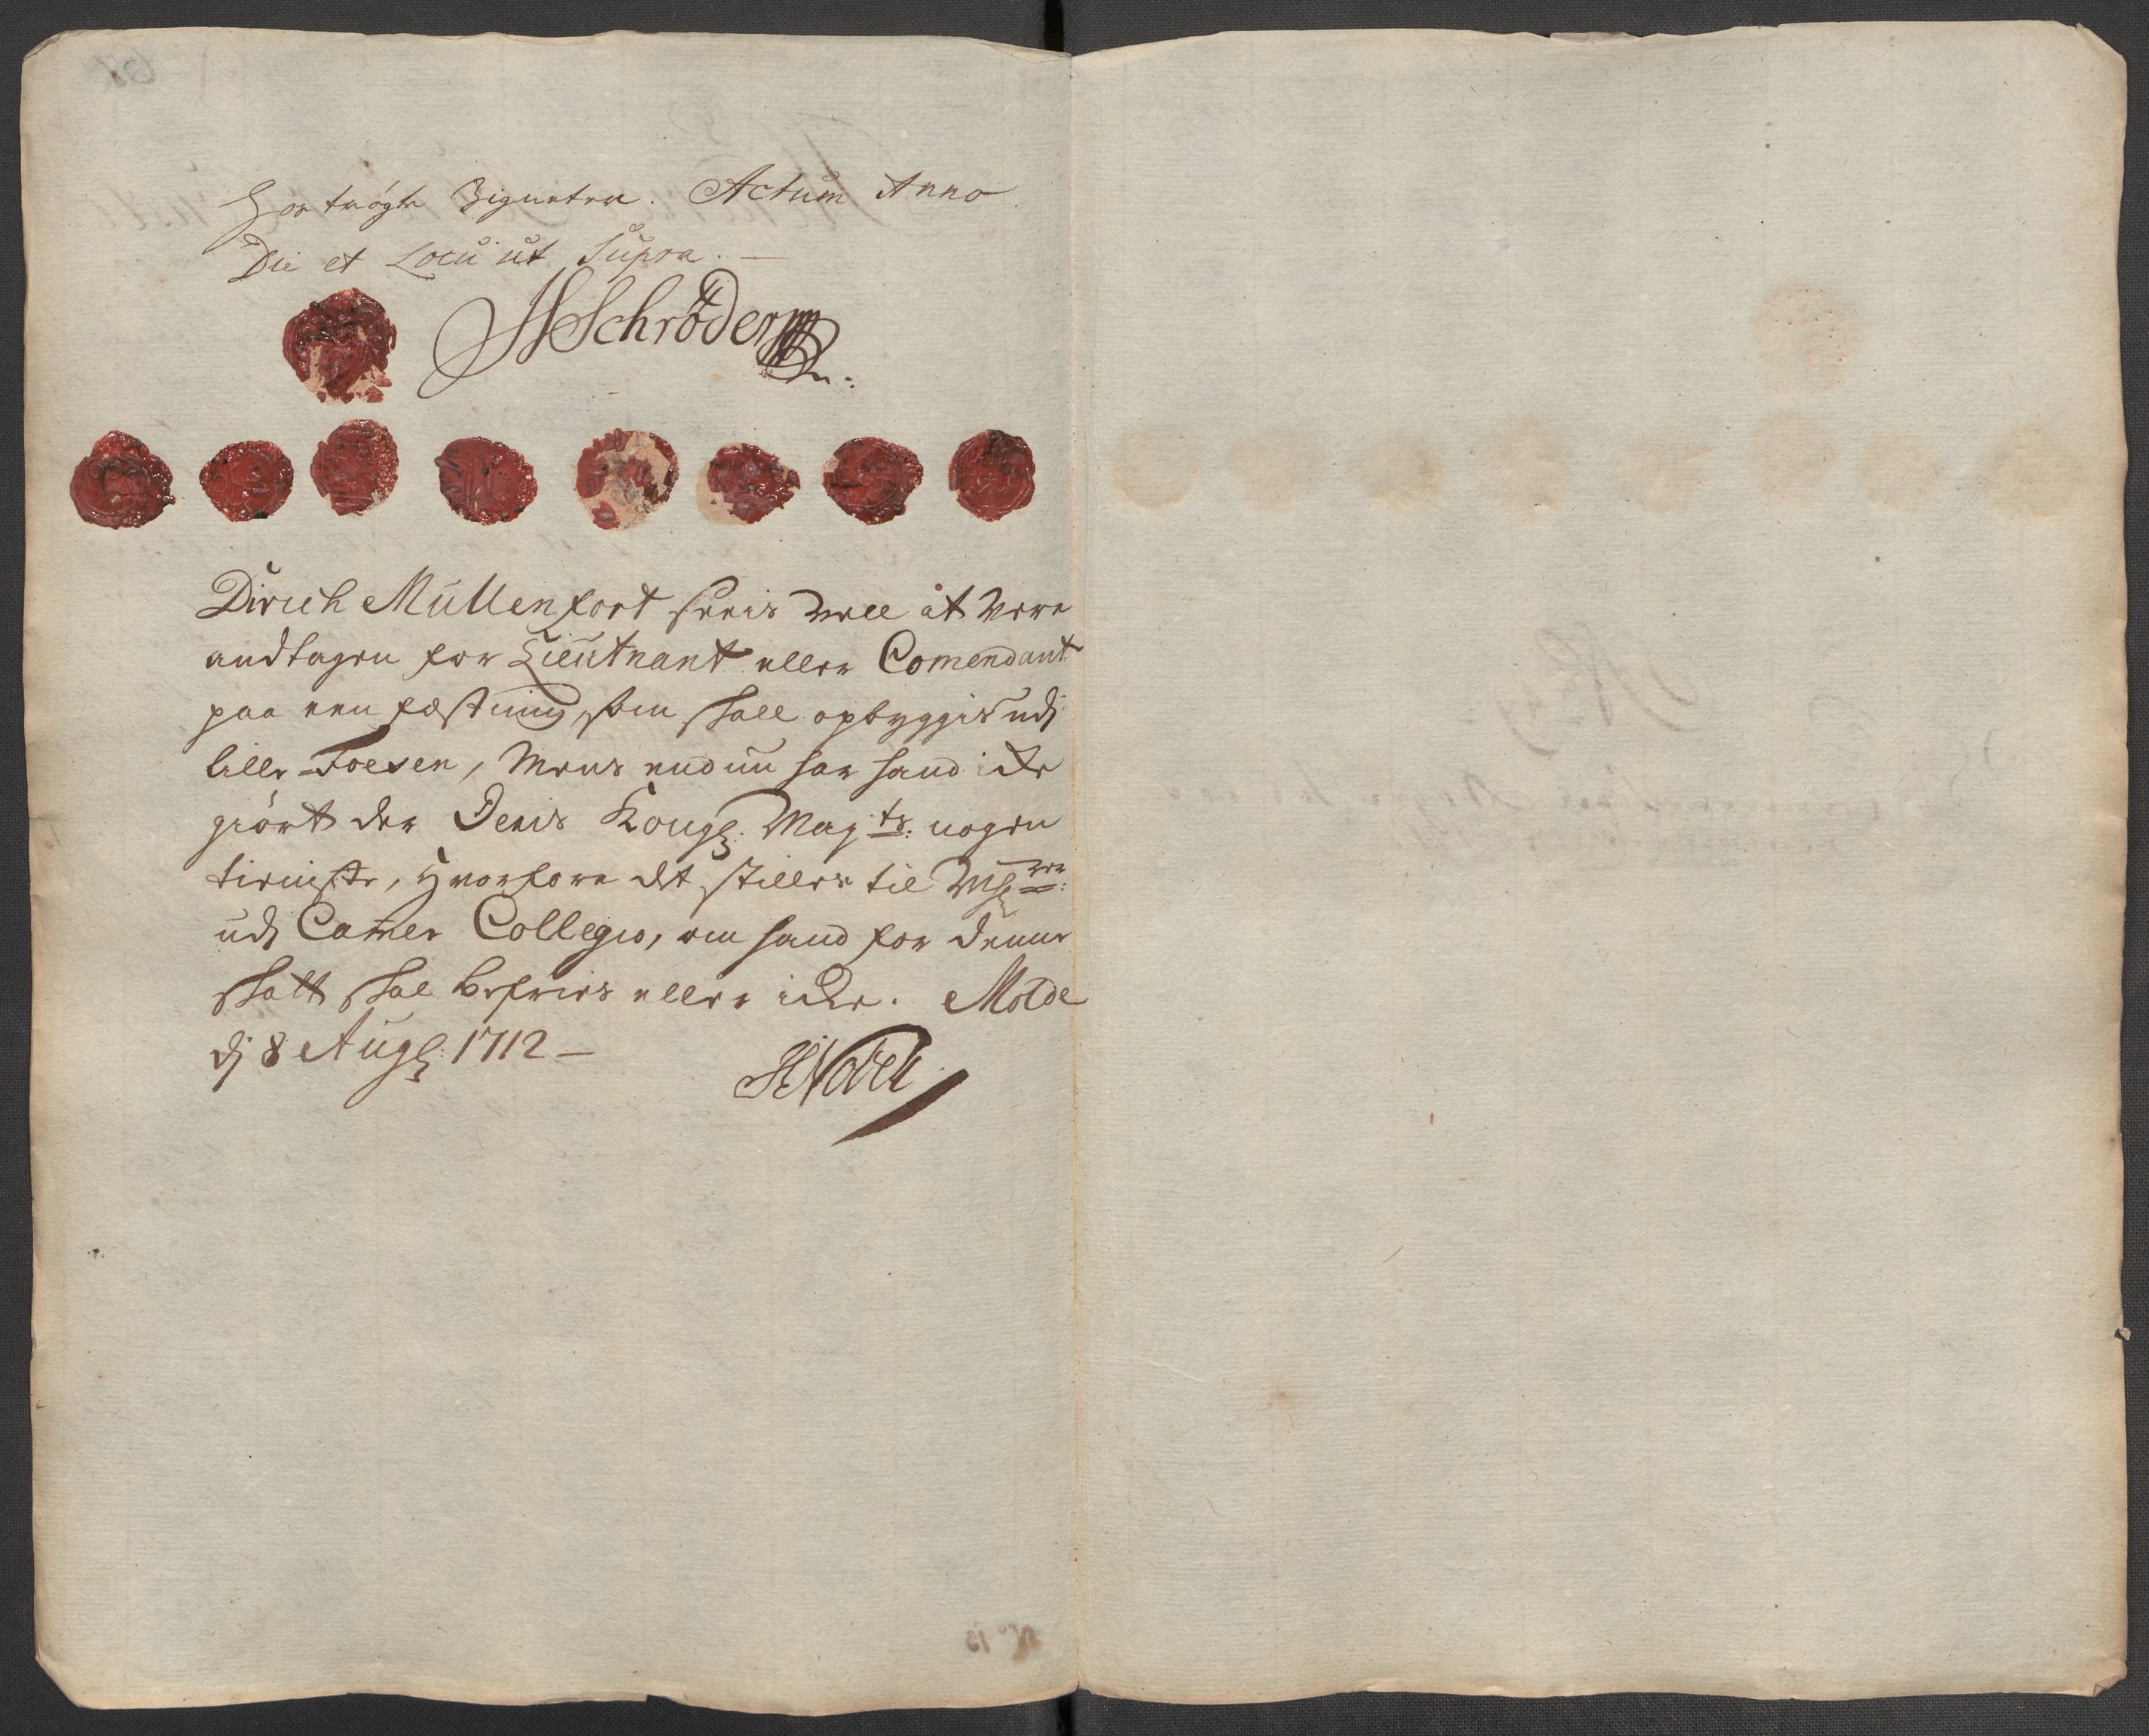 hos trögte Zigneter. Actum Anno
Die et Locú út Súpra. —
HSchröder
Dirich Mùllenfort sees well at were
andtagen for Lieútnant eller Comendant
paa een fæstning, som skall opbyggis udj
lille=Foesen, Mens end nu har hand icke
giört der Deris Kongl: May:ts: nogen
tieniste, hvorfore det stilles til
udj Camer Collegio, om hand for denne
skatt skal befries eller icke. Molde
dj 8 Aug: 1712 —
No 13